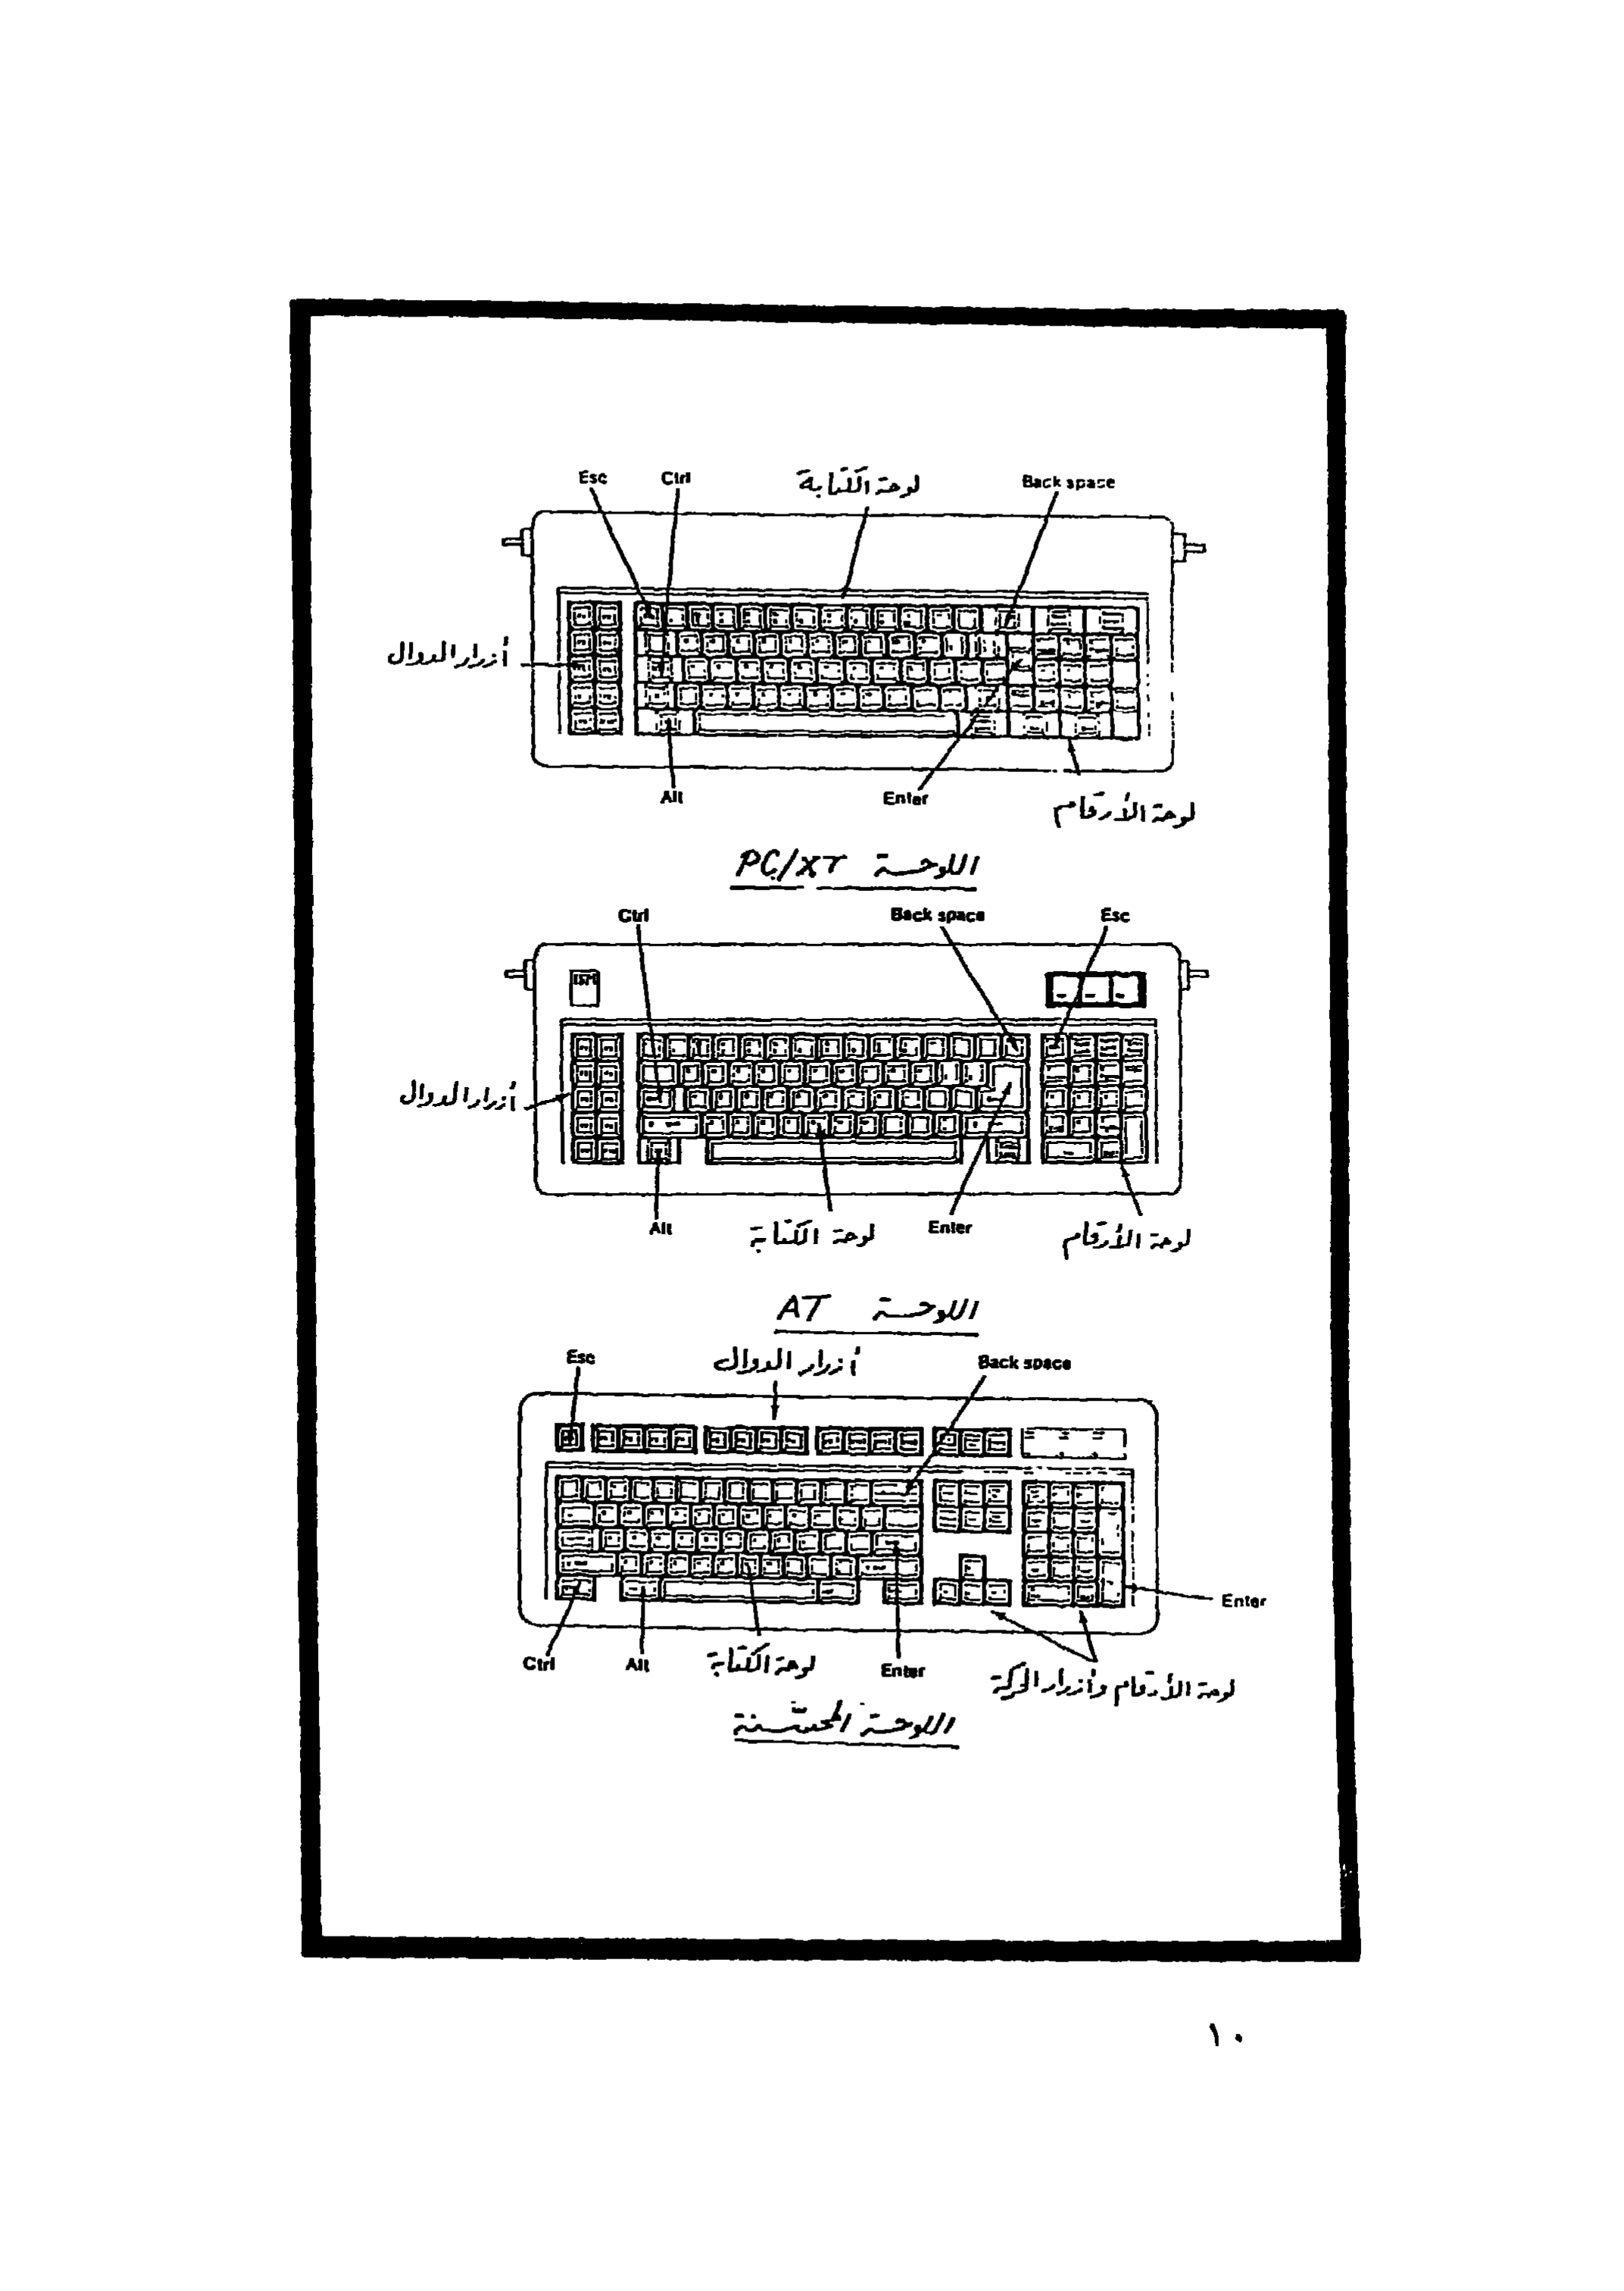 Esc Ctrl لوحة الكتابة Back space
أزرار الدوال
Alt Enter لوحة الأرقام
اللوحة PC/XT
Ctrl Back space Esc
IBM
أزرار الدوال
Alt لوحة الكتابة Enter لوحة الأرقام
اللوحة AT
Esc أزرار الدوال Back space
Enter
Ctrl Alt لوحة الكتابة Enter لوحة الأرقام وأزرار الحركة
اللوحة المحسّنة
١٠